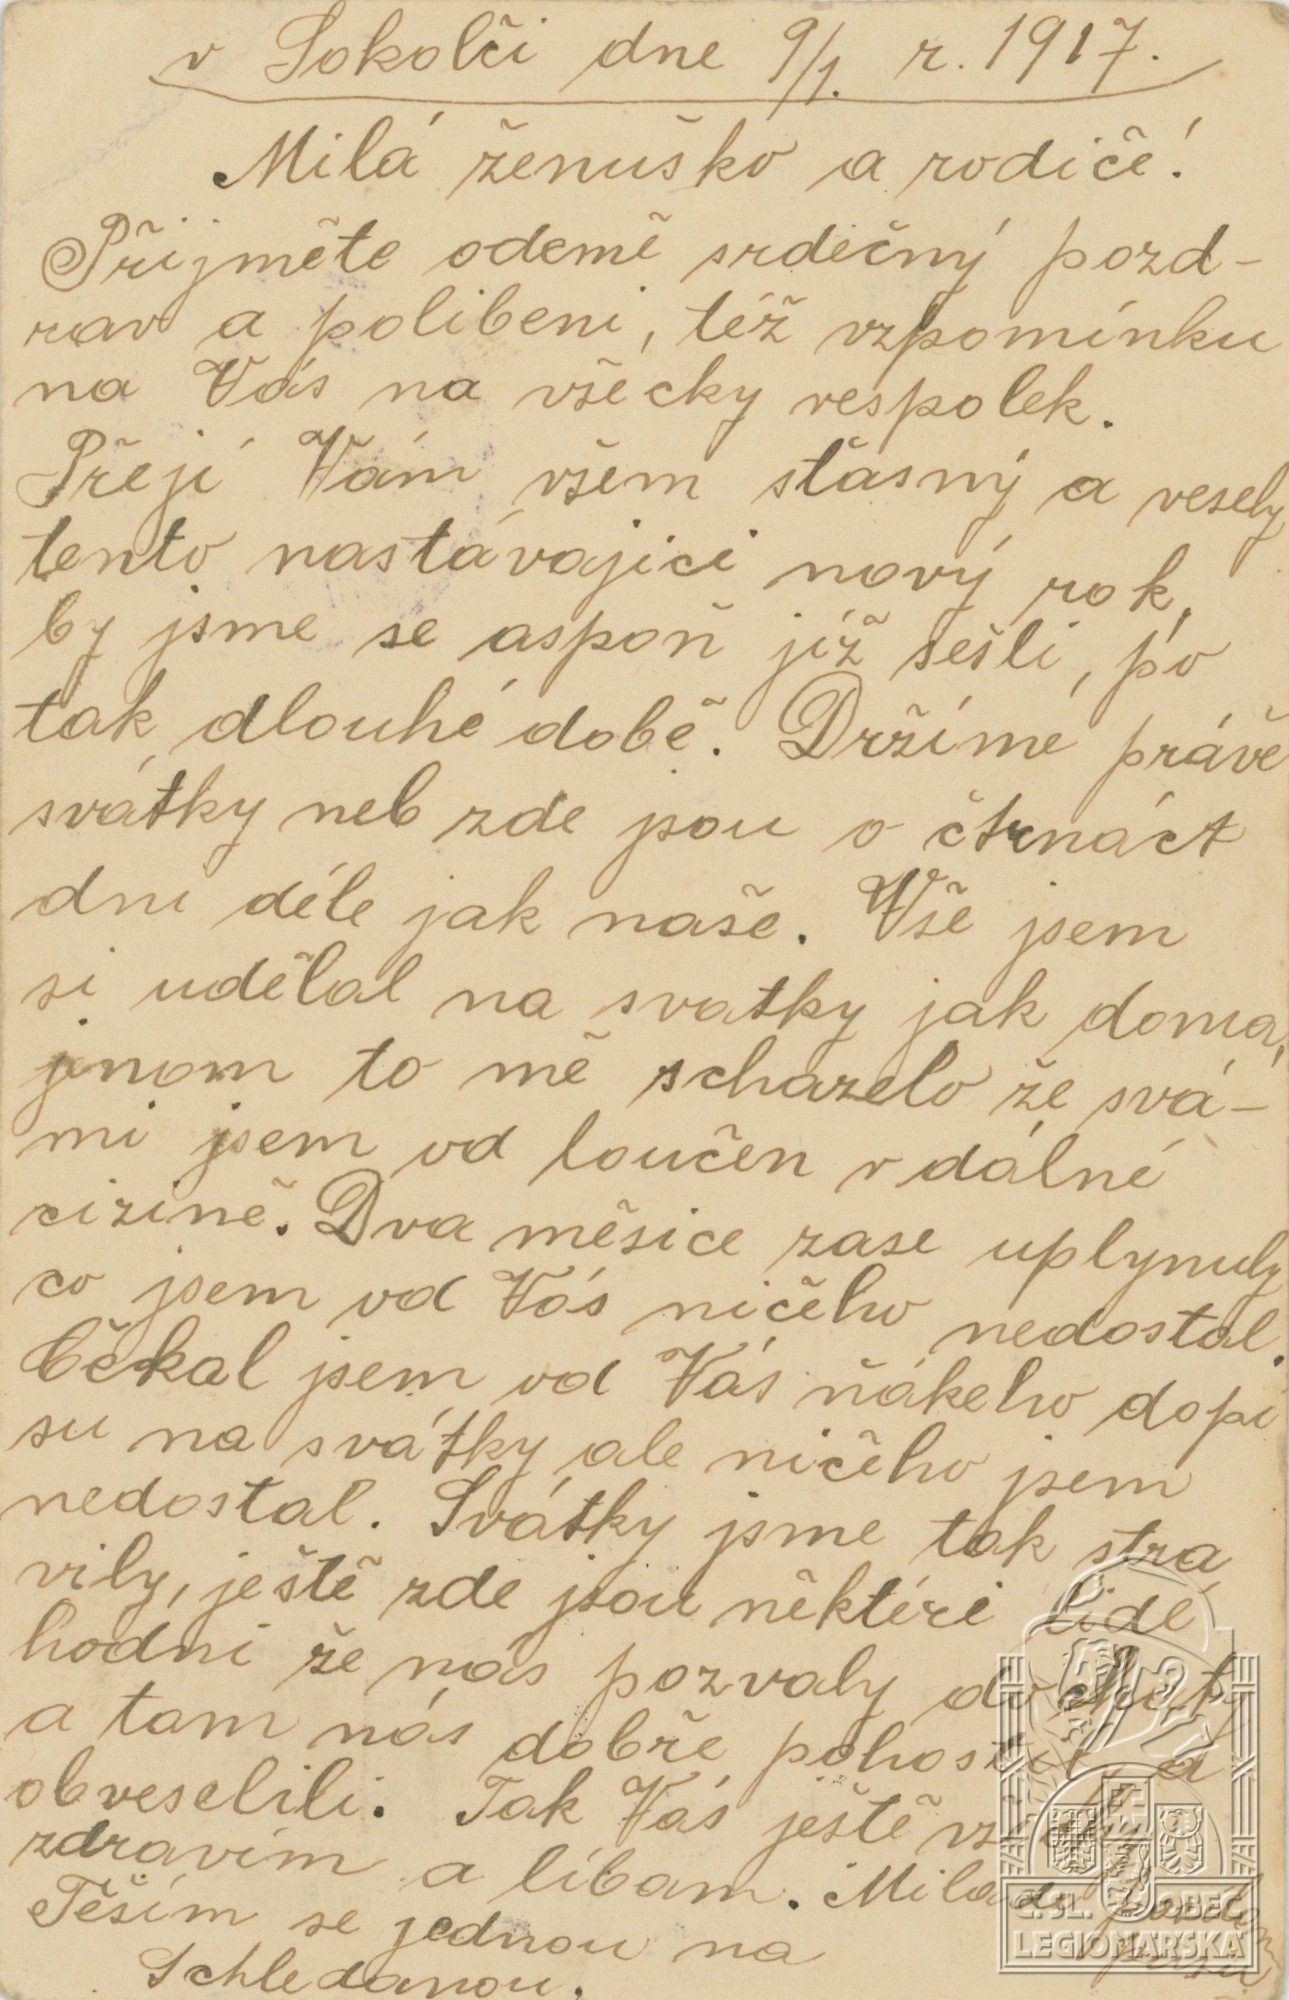 v Sokolči dne 9/1. r. 1917.
Milá ženuško a rodiče!
Přijměte odemě srdečný pozd-
rav a polibeni, též vzpomínku
na Vás na všecky vespolek.
Přeji Vám všem sťasný a vesely
tento nastávajici nový rok,
by jsme se aspoň již sešli, po
tak dlouhé době. Držíme právě
svátky neb zde jsou o čtrnáct
dni déle jak naše. Vše jsem
si udělal na svatky jak doma,
jenom to mě schazelo že svá-
mi jsem od loučen v dálné
cizině. Dva měsice zase uplynuly
co jsem od Vás ničeho nedostal.
Čekal jsem od Vás ňákeho dopi
su na svátky ale ničeho jsem
nedostal. Svátky jsme tak stra
vily, ještě zde jsou některi lidé
hodni že nás pozvaly do
a tam nás dobře pohostili a
obveselili. Tak Vás ještě
zdravím a líbam. Milada
Těším se jednou na
Schledanou.
Č. SL. OBEC
LEGIONÁŘSKÁ